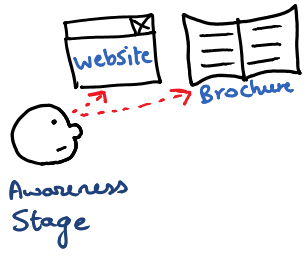 website
Brochure
Awareness
Stage